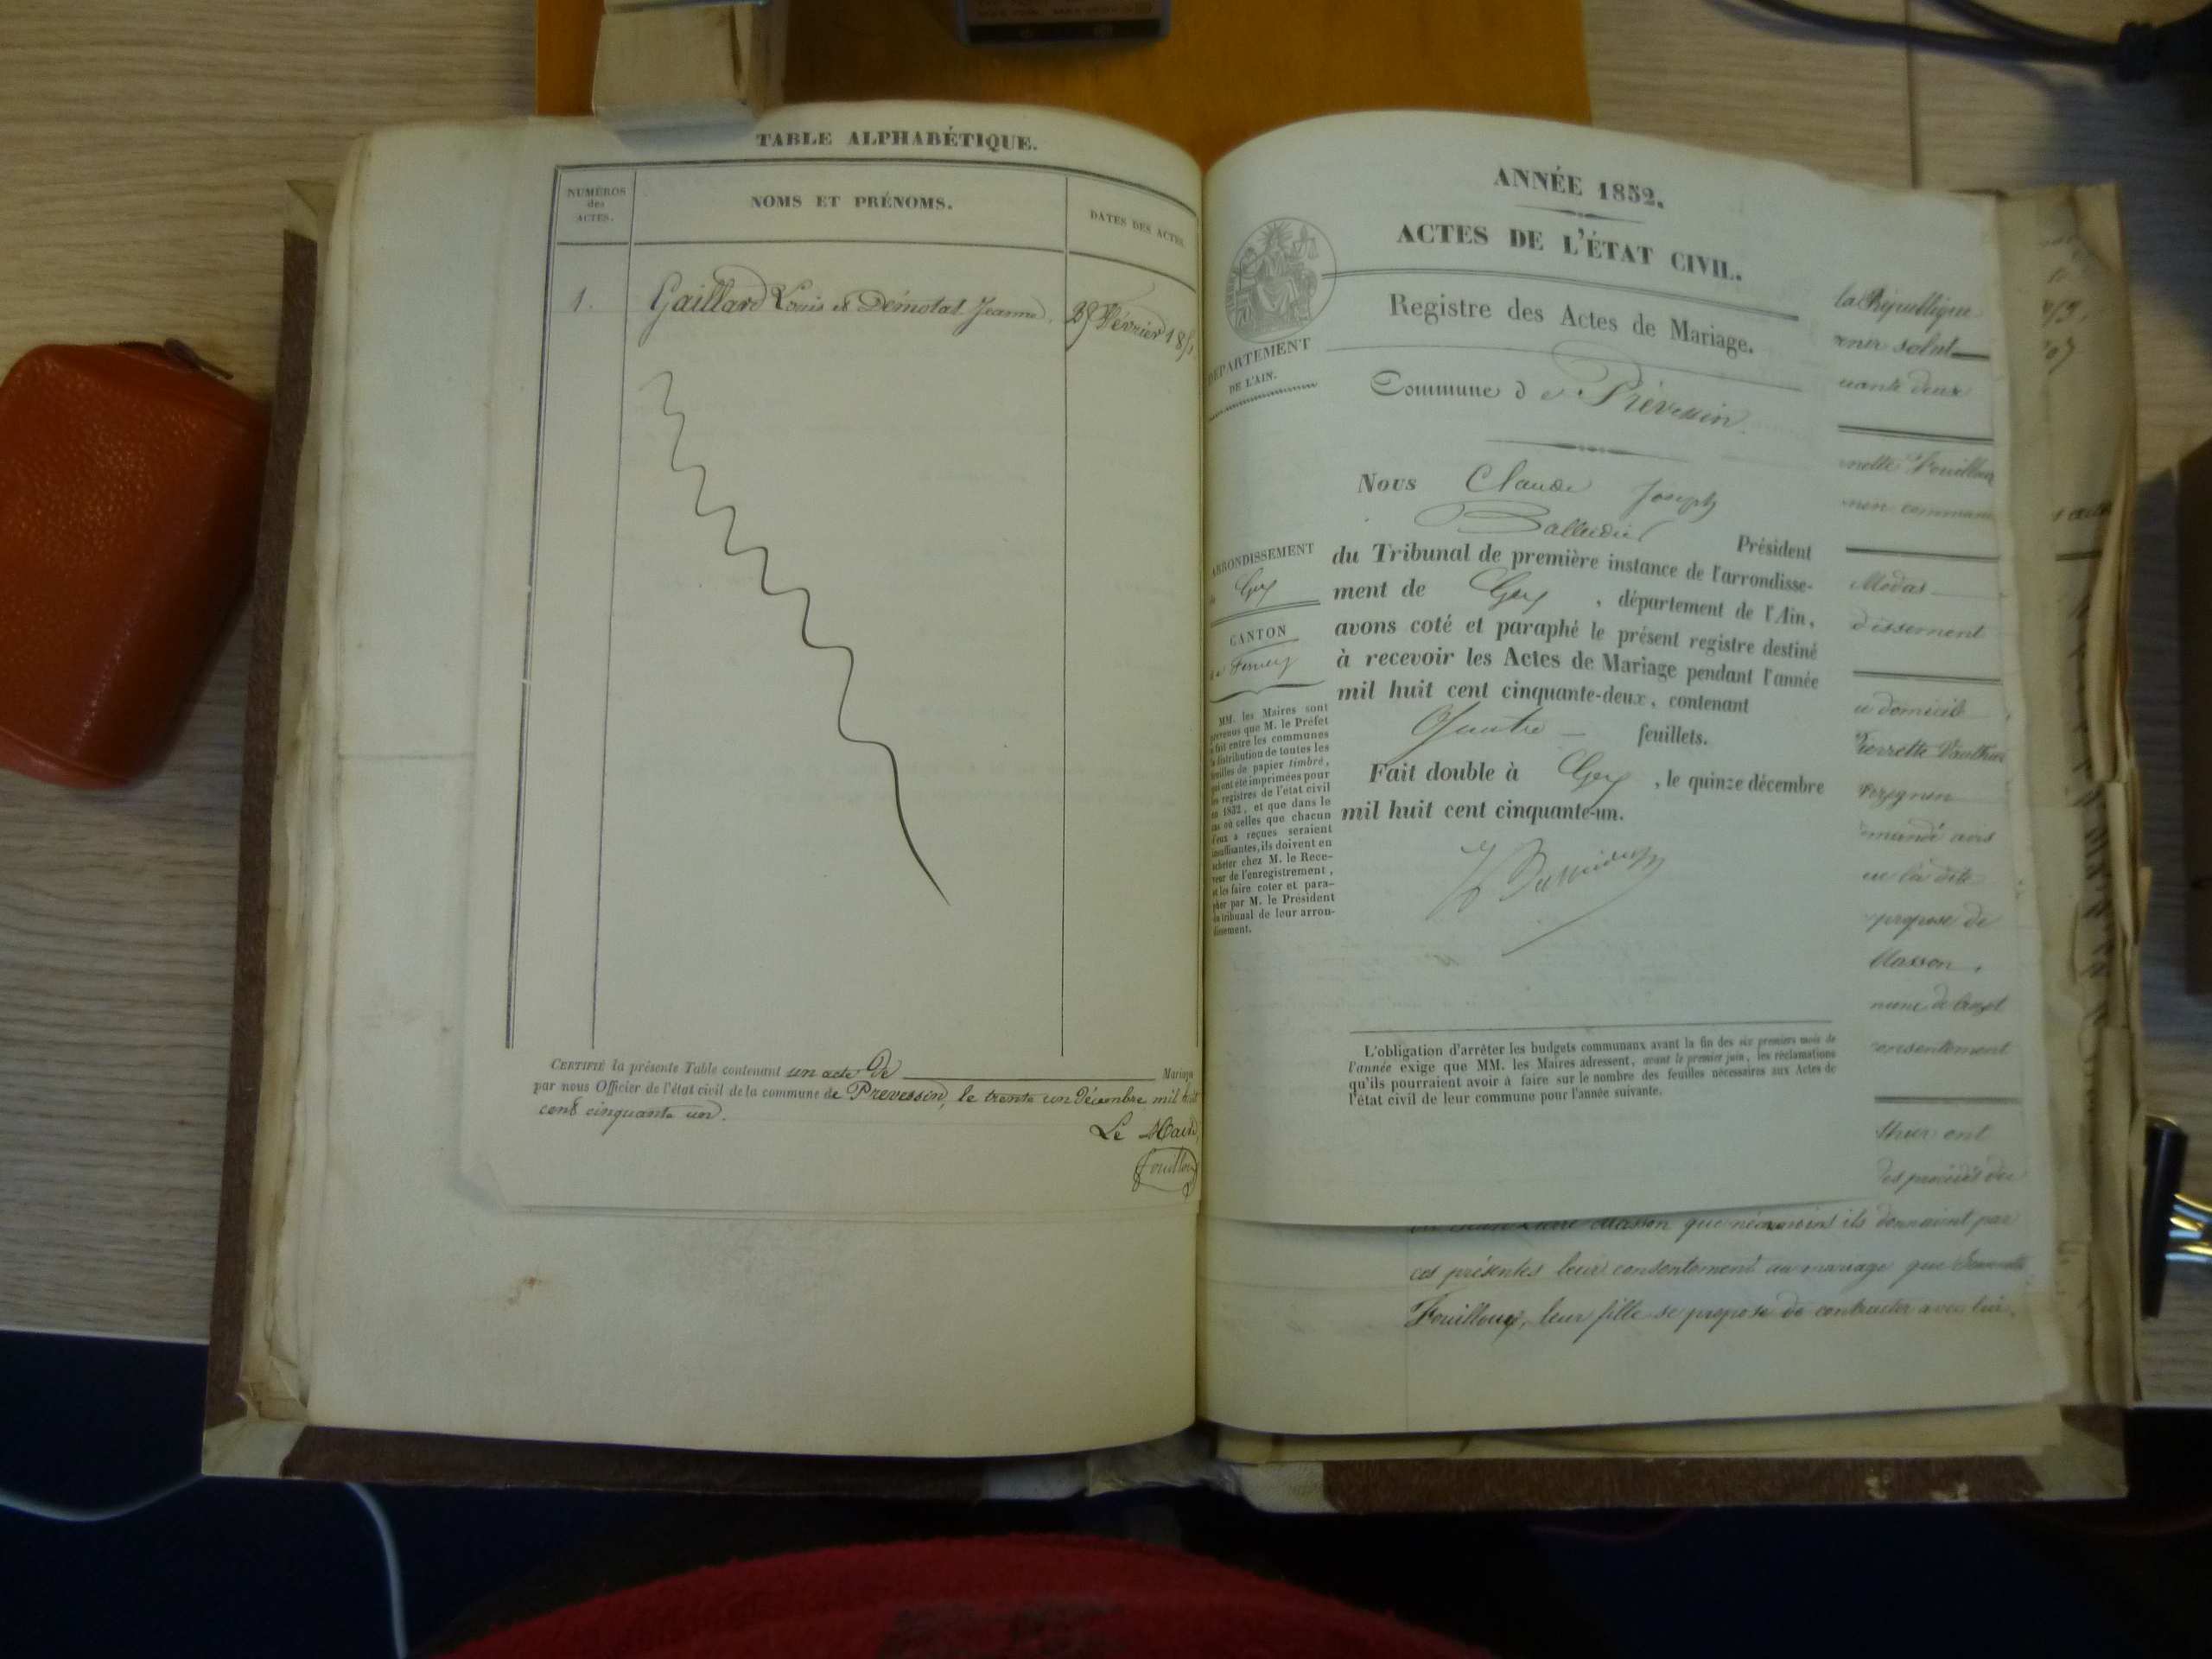 TABLE ALPHABÉTIQUE.
NUMÉROS
des
ACTES.
NOMS ET PRÉNOMS.
DATES DES ACTES.
1. Gaillard Louis et Démotat Jeanne. Février
CERTIFIÉ la présente Table contenant un acte de Mariage
par nous Officier de l'état civil de la commune de Prevessin, le trente un Décembre mil huit
cent cinquante un.
Le Maire,
Fouilloux
ANNÉE 1852.
ACTES DE L'ÉTAT CIVIL.
Registre des Actes de Mariage.
DÉPARTEMENT
DE L'AIN.
Commune de Prévessin.
Nous Claude Joseph
Président
du Tribunal de première instance de l'arrondisse-
ment de Gex, département de l'Ain,
avons coté et paraphé le présent registre destiné
à recevoir les Actes de Mariage pendant l'année
mil huit cent cinquante-deux, contenant
Quatre feuillets.
Fait double à Gex, le quinze décembre
mil huit cent cinquante-un.
ARRONDISSEMENT
Gex
CANTON
de Ferney
MM. les Maires sont
prévenus que M. le Préfet
a fait entre les communes
la distribution de toutes les
feuilles de papier timbré,
qui ont été imprimées pour
les registres de l'état civil
en 1852, et que dans le
cas où celles que chacun
d'eux a reçues seraient
insuffisantes, ils doivent en
acheter chez M. le Rece-
veur de l'enregistrement,
et les faire coter et para-
pher par M. le Président
du tribunal de leur arron-
dissement.
L'obligation d'arrêter les budgets communaux avant la fin des six premiers mois de
l'année exige que MM. les Maires adressent, avant le premier juin, les réclamations
qu'ils pourraient avoir à faire sur le nombre des feuilles nécessaires aux Actes de
l'état civil de leur commune pour l'année suivante.
la République
salut
deux
Fouilloux
commune
domicile
Pierrette
avis
propose de
Masson,
consentement
ont
Masson que néanmoins ils donnaient par
ces présentes leur consentement au mariage que
Fouilloux, leur fille se propose de contracter avec lui.